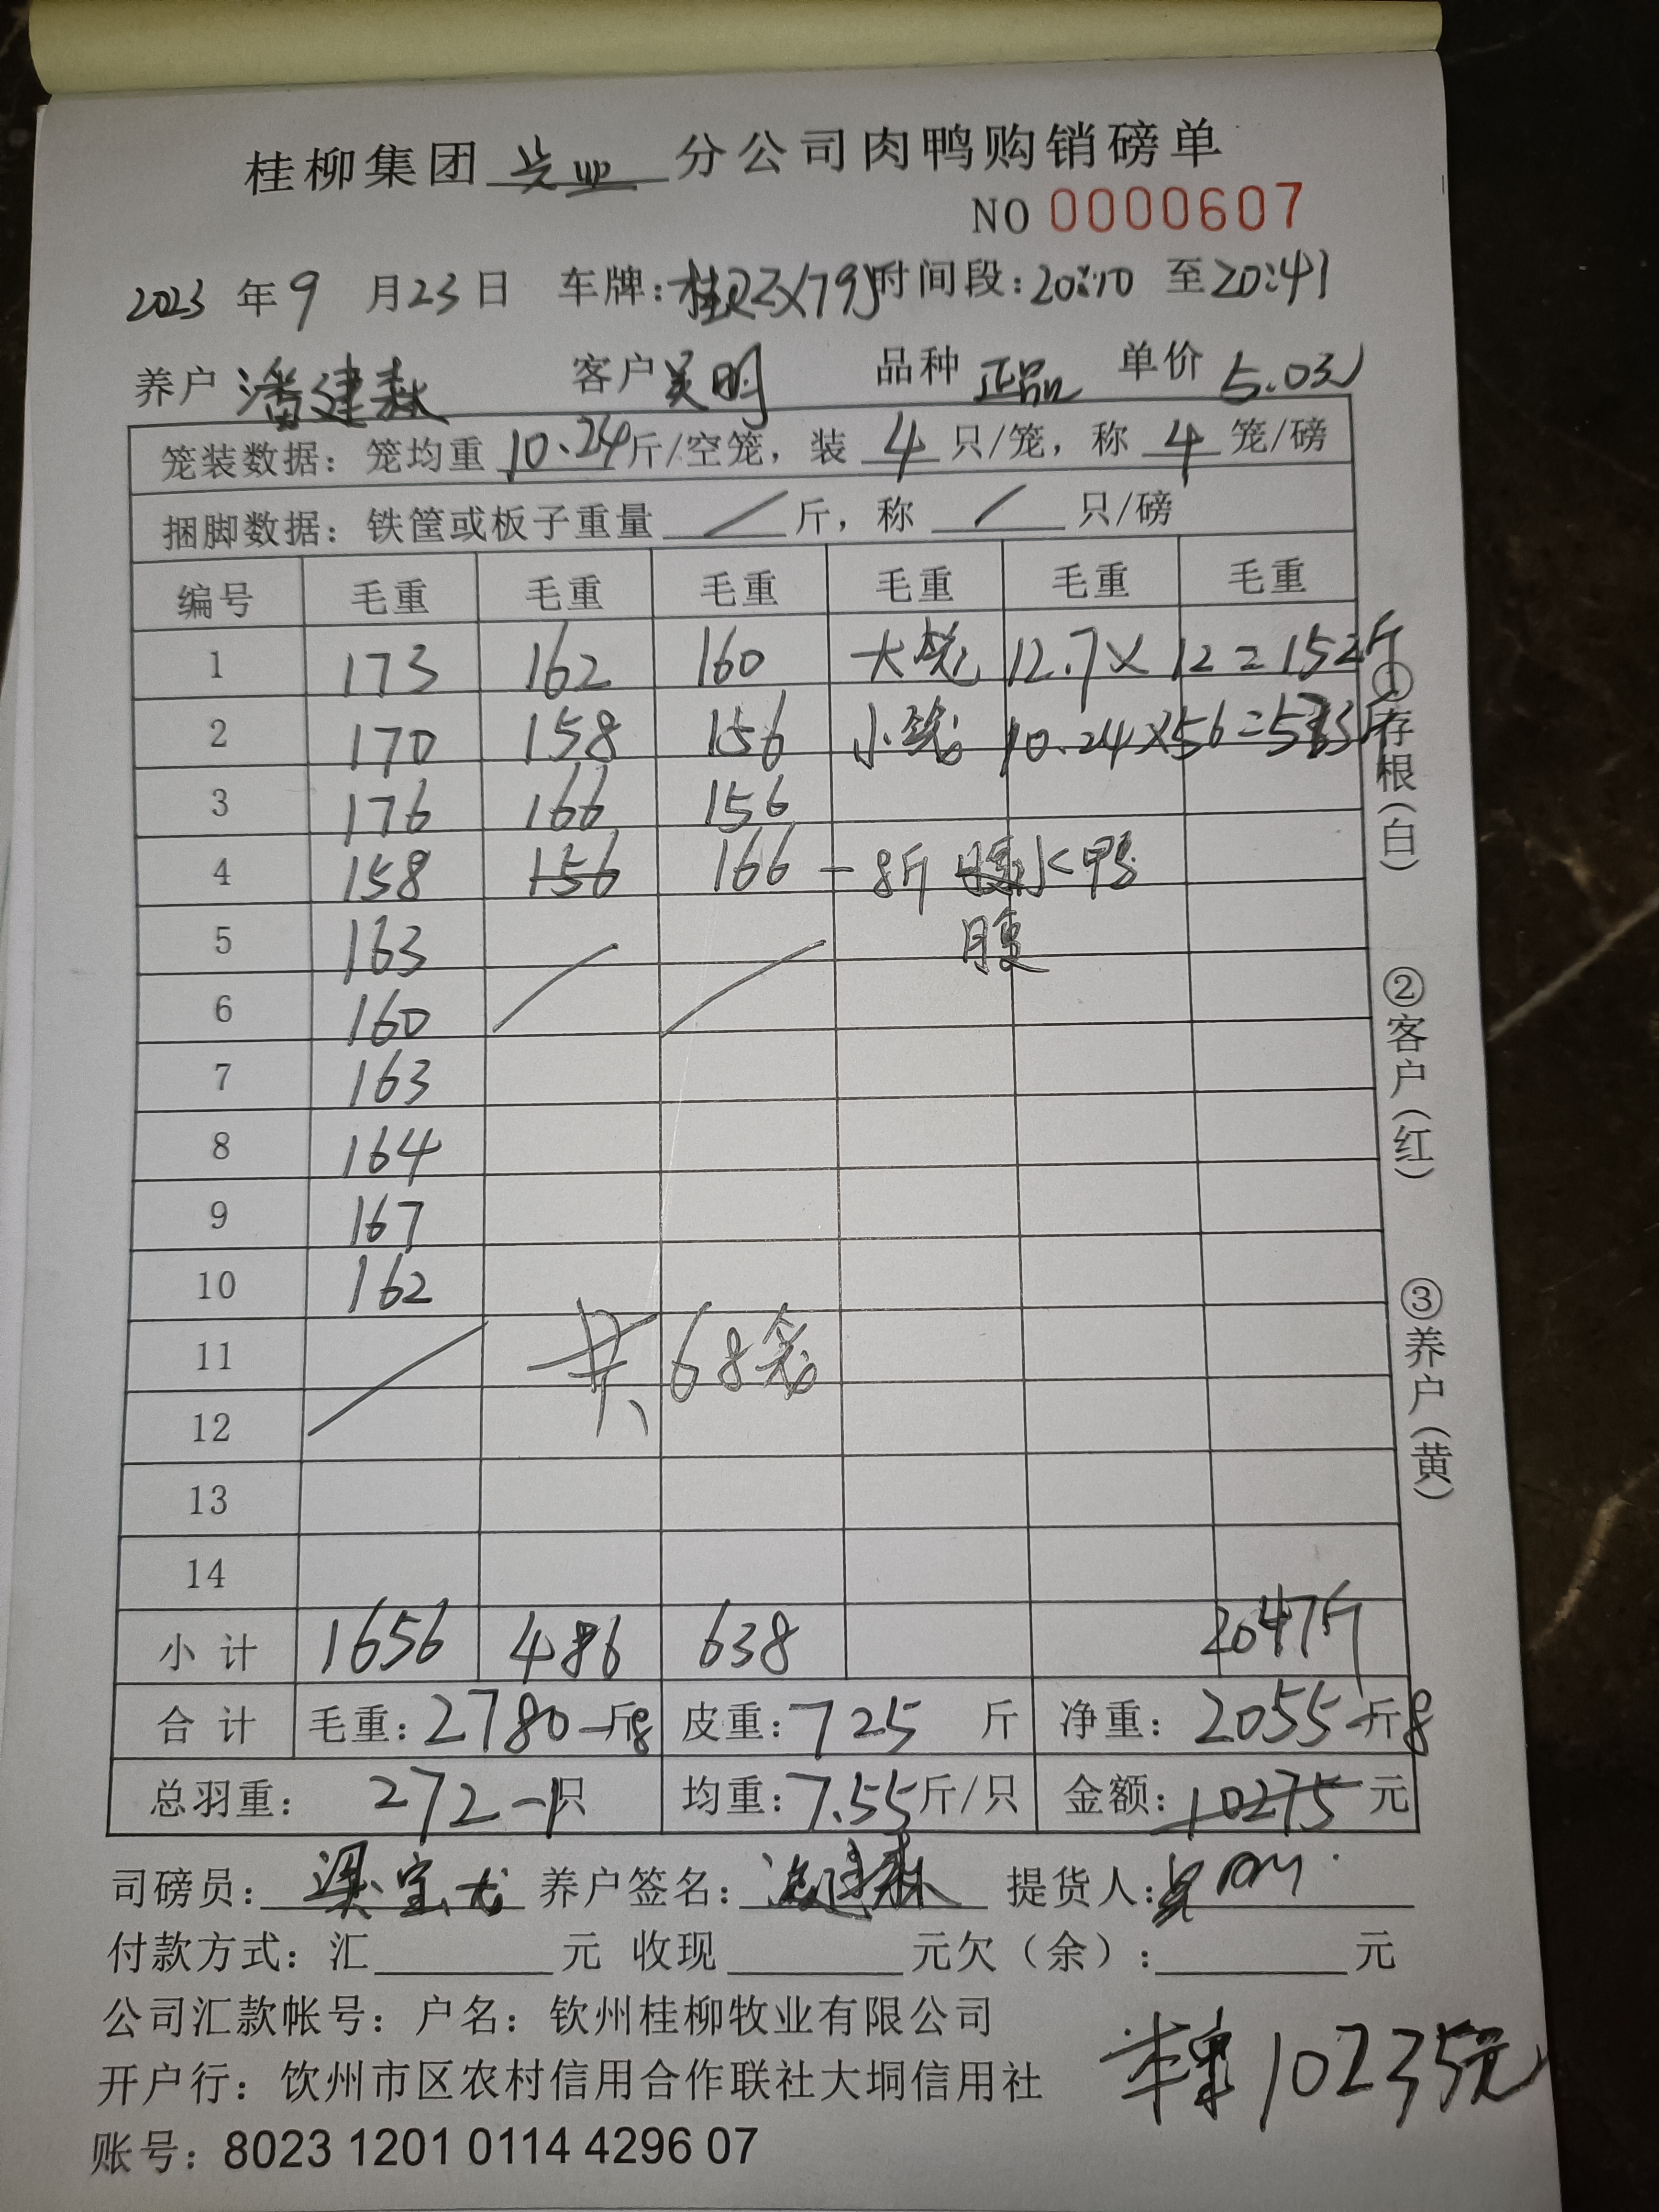 桂柳集团 兴业 分公司肉鸭购销磅单
NO 0000607
2023 年 9 月 23 日 车牌: 时间段: 20:10 至 20:41
养户 潘建森 客户 吴明 品种 正品 单价 5.0元
笼装数据: 笼均重 10.24 斤/空笼, 装 4 只/笼, 称 4 笼/磅
捆脚数据: 铁筐或板子重量 / 斤, 称 / 只/磅
编号 毛重 毛重 毛重 毛重 毛重 毛重
1 173 162 160 大笼 12.7×12=152斤
2 170 158 156 小笼 10.24×56=573斤
3 176 166 156
4 158 156 166 -8斤 水鸭
5 163 腹
6 160
7 163
8 164
9 167
10 162
11 共68笼
12
13
14
小计 1656 486 638 2047斤
合计 毛重: 2780-8斤 皮重: 725 斤 净重: 2055-8斤
总羽重: 272-1只 均重: 7.55斤/只 金额: 10275 元
司磅员: 梁宝龙 养户签名: 潘建森 提货人: 吴明
付款方式: 汇 元 收现 元欠(余): 元
公司汇款帐号: 户名: 钦州桂柳牧业有限公司
开户行: 钦州市区农村信用合作联社大垌信用社
10235元
账号: 8023 1201 0114 4296 07
①存根(白)
②客户(红)
③养户(黄)